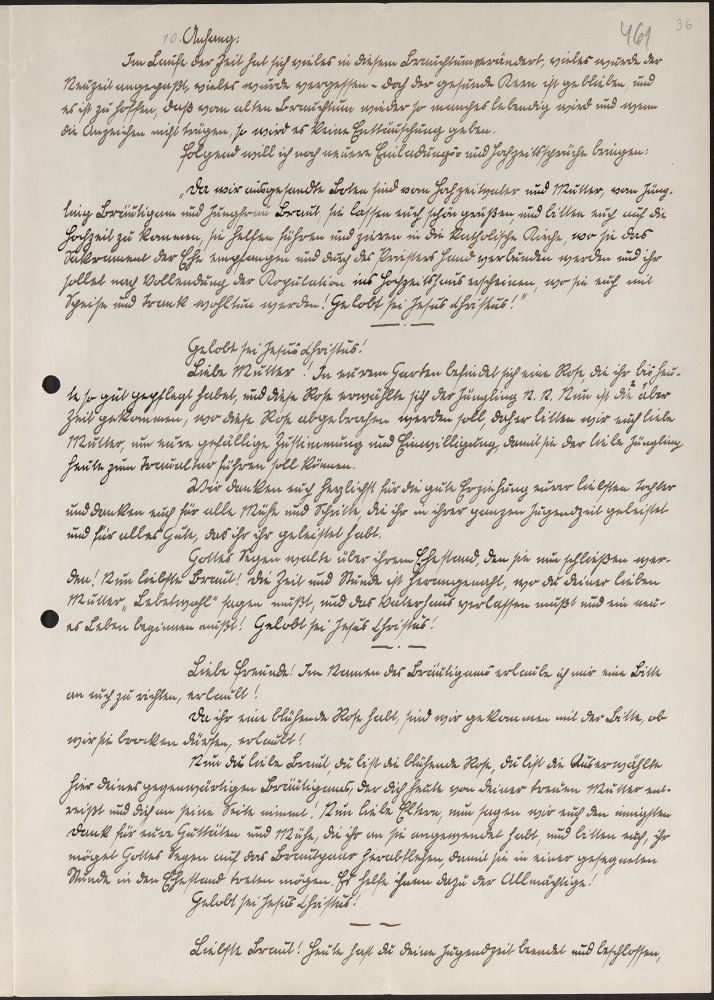 461 36
10. Anhang:
Im Laufe der Zeit hat sich vieles in diesem Brauchtum verändert, vieles wurde der
Neuzeit angepaßt, vieles wurde vergessen - doch der gesunde Kern ist geblieben, und
es ist zu hoffen, daß vom alten Brauchtum wieder so manches lebendig wird und wenn
die Anzeichen nicht trügen, so wird es keine Enttäuschung geben.
Folgend will ich noch neuere Einladungs- und Hochzeitssprüche bringen:
„Da wir ausgesandte Boten sind vom Hochzeitvater und Mutter, vom Jüng-
ling Bräutigam und Jungfrau Braut, sie lassen euch schön grüßen, und bitten euch auf die
Hochzeit zu kommen, sie helfen führen und zieren in die katholische Kirche, wo sie das
Sakrament der Ehe empfangen und durch des Priesters Hand verbunden werden und ihr
sollet nach Vollendung der Kopulation ins Hochzeitshaus erscheinen, wo sie euch mit
Speise und Trank wohltun werden! Gelobt sei Jesus Christus!"
Gelobt sei Jesus Christus!
Liebe Mutter! In eurem Garten befindet sich eine Rose, die ihr bis heu-
te so gut gepflegt habet, und diese Rose erwählte sich der Jüngling N. N. Nun ist die aber
Zeit gekommen, wo diese Rose abgebrochen werden soll, daher bitten wir euch liebe
Mutter, um eure gefällige Zustimmung und Einwilligung, damit sie der liebe Jüngling
heute zum Traualtar führen soll können.
Wir danken euch herzlichst für die gute Erziehung eurer liebsten Tochter
und danken euch für alle Mühe und Schritte, die ihr in ihrer ganzen Jugendzeit geleistet
und für alles Gute, das ihr ihr geleistet habt.
Gottes Segen walte über ihrem Ehestand, den sie nun schließen wer-
den! Nun liebste Braut! Die Zeit und Stunde ist herangenaht, wo du deiner lieben
Mutter „Lebetwohl" sagen mußt, und das Vaterhaus verlassen mußt und ein neu-
es Leben beginnen mußt! Gelobt sei Jesus Christus!
Liebe Freunde! Im Namen des Bräutigams erlaube ich mir eine Bitte
an euch zu richten, erlaubt!
Da ihr eine blühende Rose habt, sind wir gekommen mit der Bitte, ob
wir sie brocken dürfen, erlaubt!
Nun du liebe Braut, du bist die blühende Rose, du bist die Auserwählte
hier deines gegenwärtigen Bräutigams, der dich heute von deiner treuen Mutter ent-
reißt und dich an seine Seite nimmt! Nun liebe Eltern, nun sagen wir euch den innigsten
Dank für eure Guttaten und Mühe, die ihr an sie angewendet habt, und bitten euch, ihr
möget Gottes Segen auf das Brautpaar herabflehen, damit sie in einer gesegneten
Stunde in den Ehestand treten mögen. Es helfe ihnen dazu der Allmächtige!
Gelobt sei Jesus Christus!
Liebste Braut! Heute hast du deine Jugendzeit beendet und beschlossen,